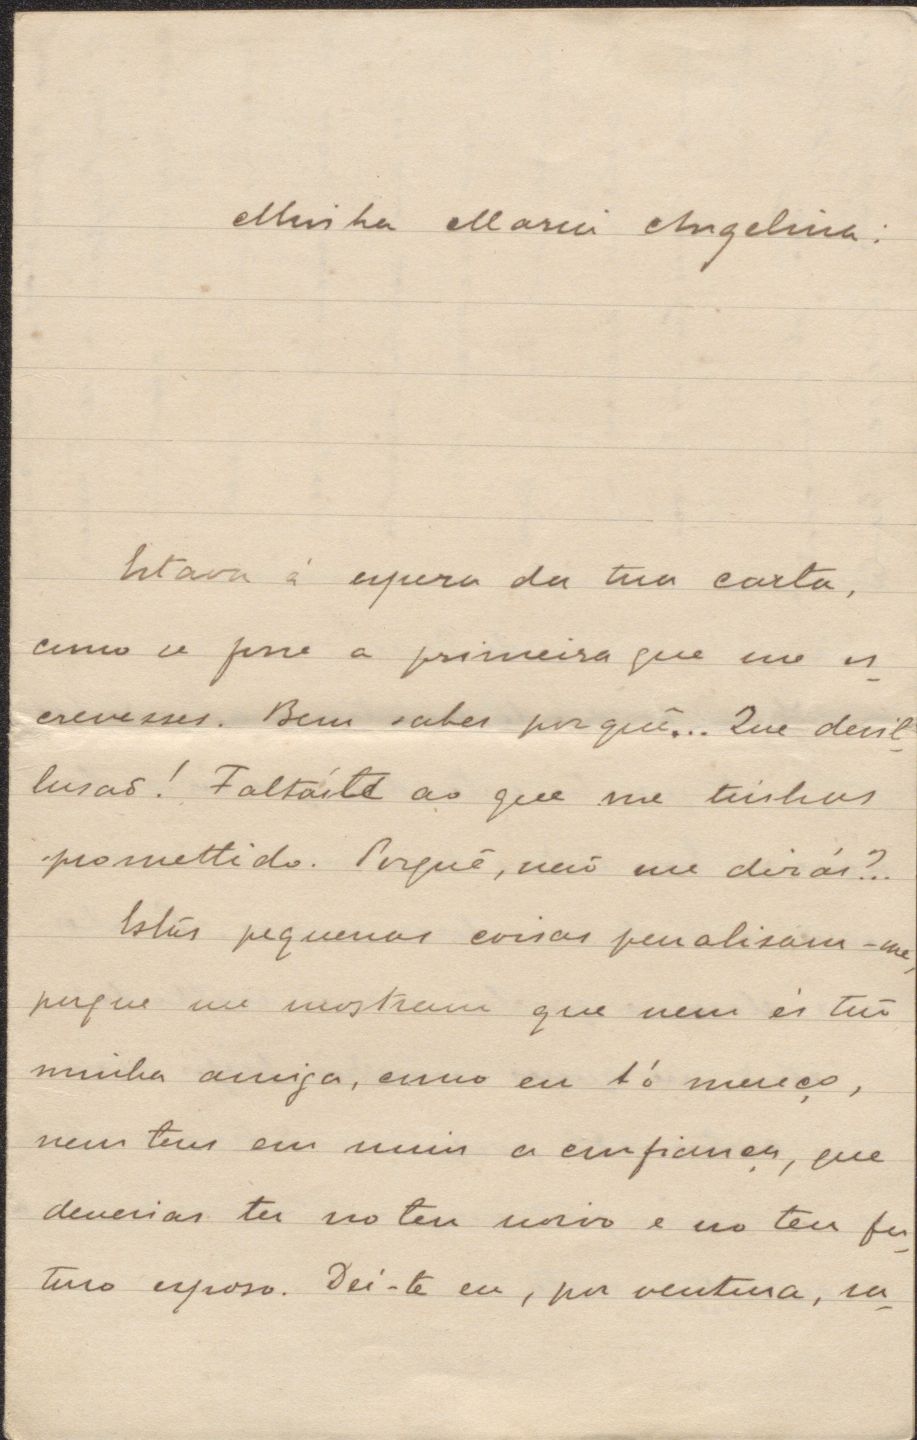 Minha Maria Angelina:
Estava á espera da tua carta,
como se fosse a primeira que me es-
crevesses. Bem sabes porquê... Que desil-
lusaõ! Faltáste ao que me tinhas
promettido. Porquê, naõ me dirás?..
Estas pequenas coisas penalisam-me,
porque me mostram que nem és taõ
minha amiga, como eu t'ó mereço,
nem tens em mim a confiança, que
deverias ter no teu noivo e no teu fu-
turo esposo. Dei-te eu, por ventura, ra-